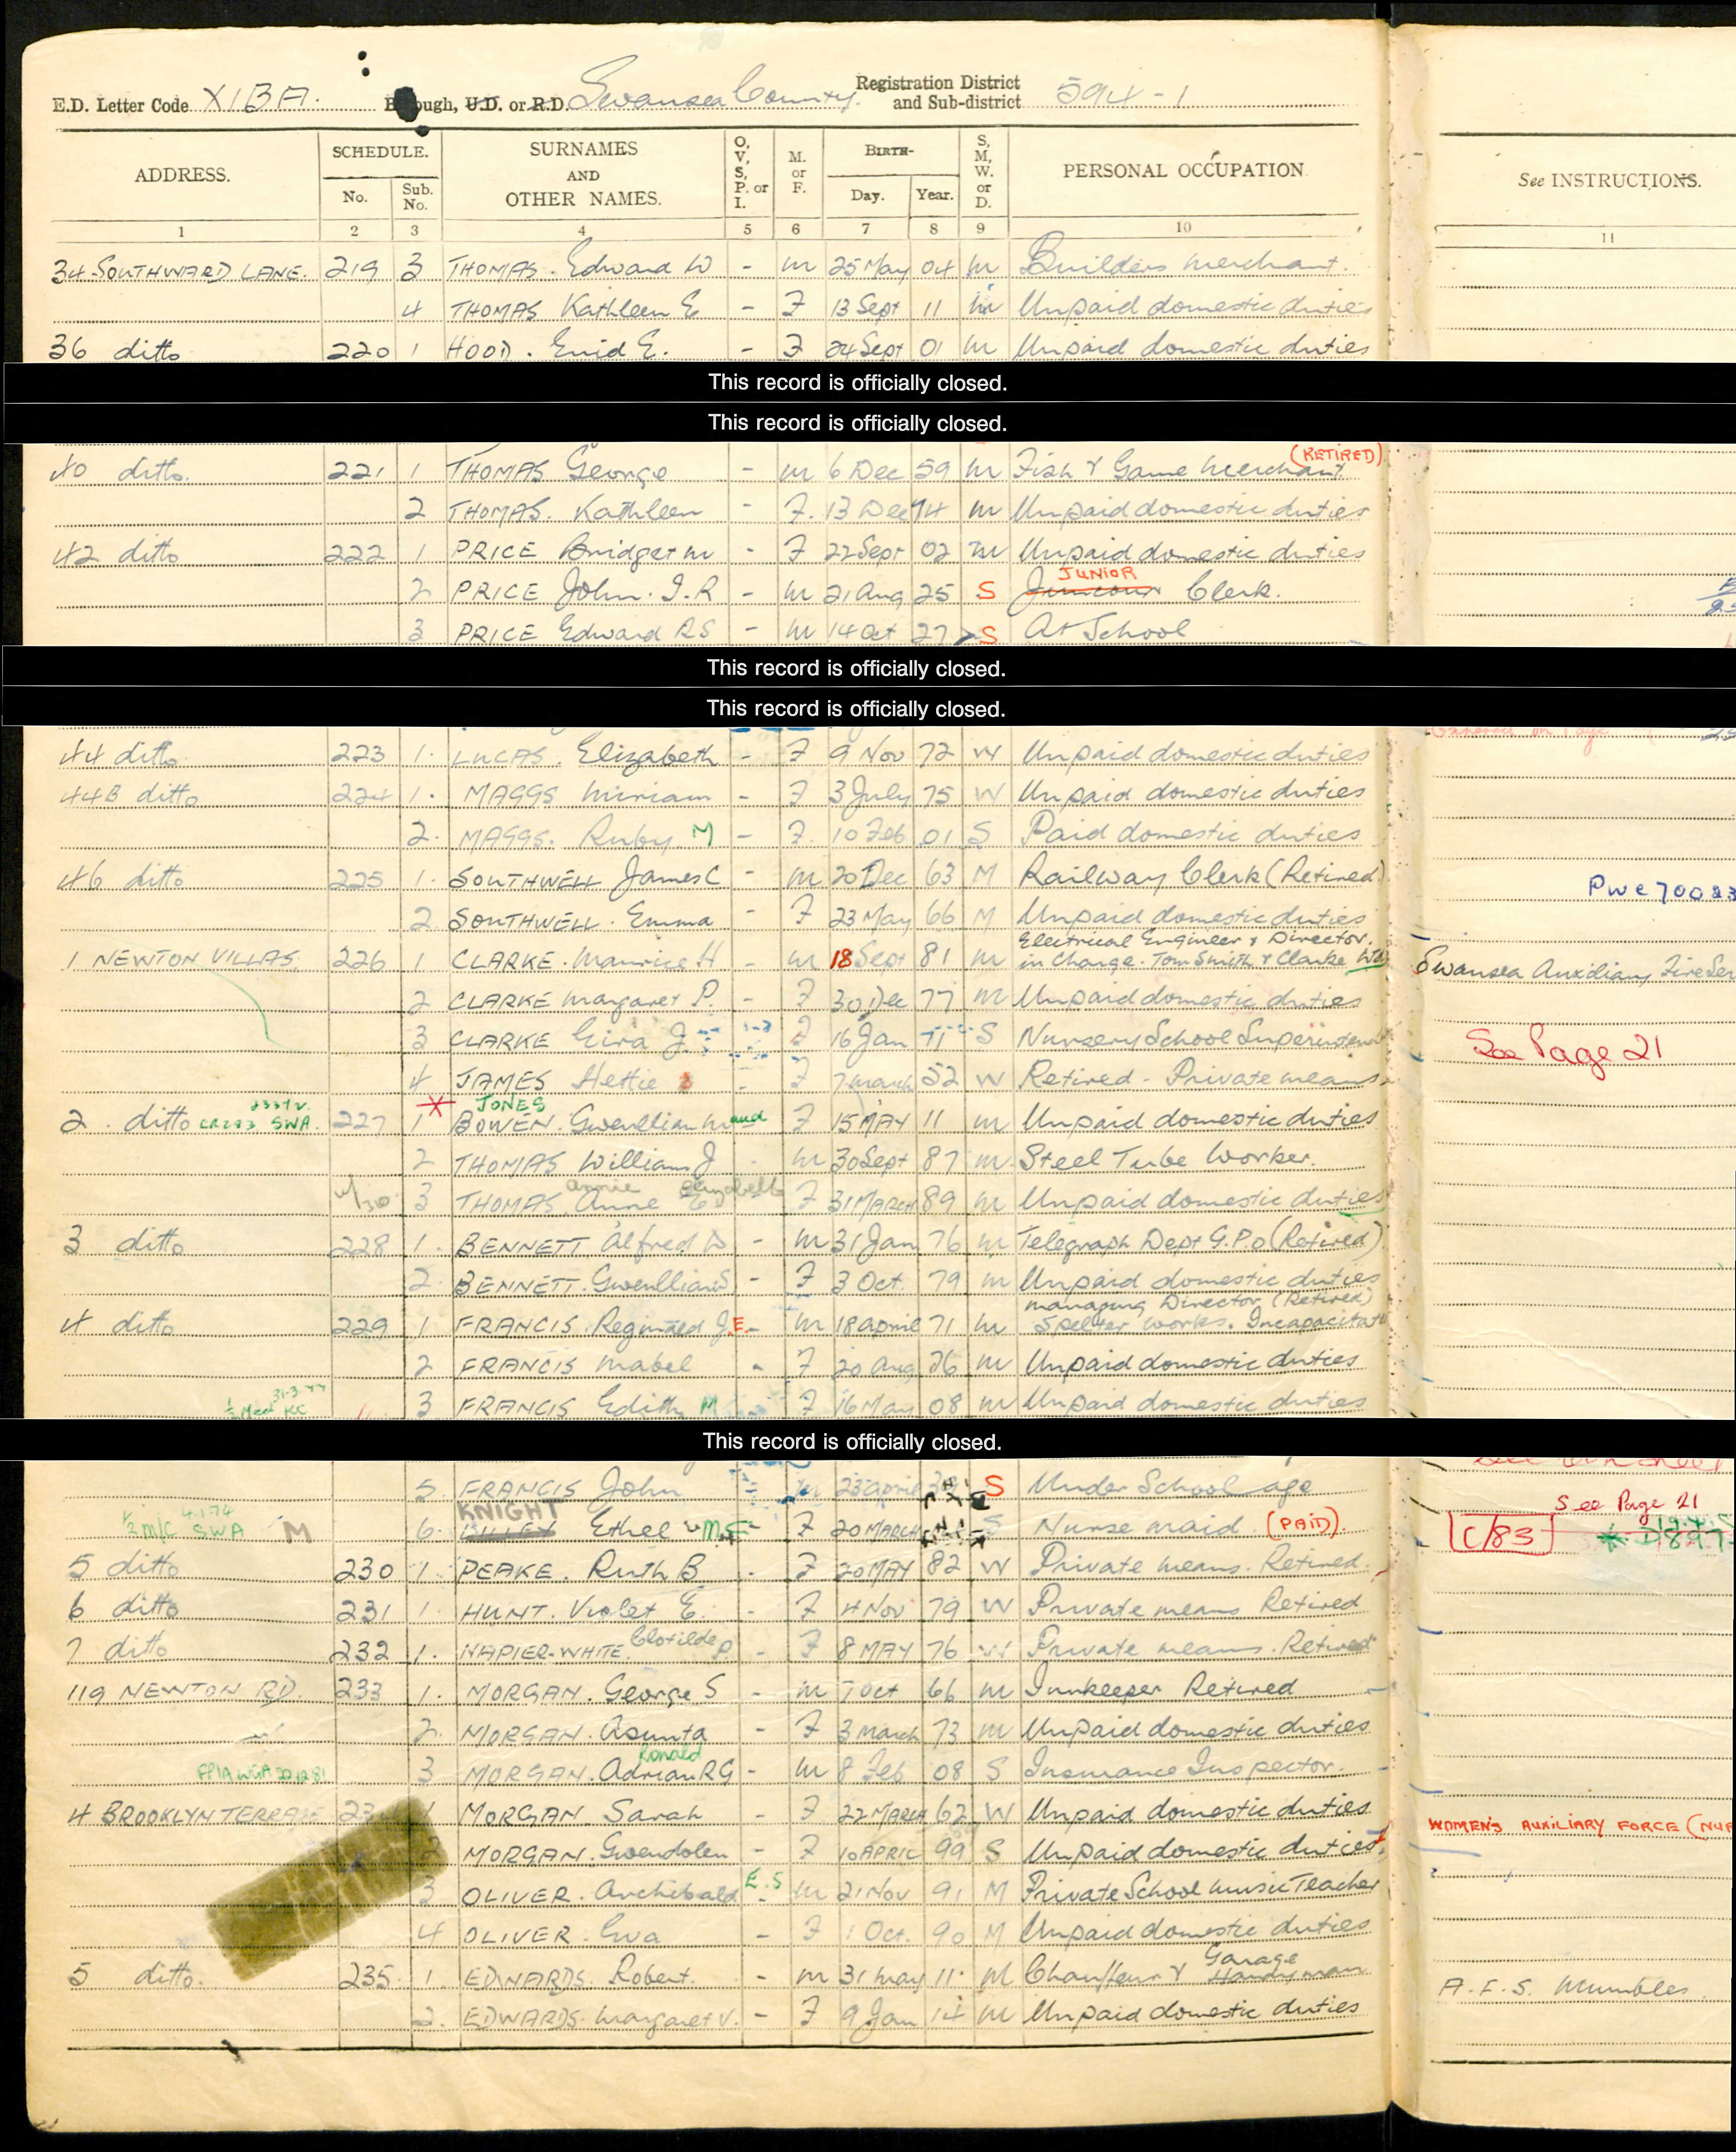 E.D. Letter Code XIBA. Borough, U.D. or R.D. Swansea County. Registration District and Sub-district 594-1
ADDRESS. SCHEDULE. No. Sub. No. SURNAMES AND OTHER NAMES. O, V, S, P. or I. M. or F. BIRTH- Day. Year. S, M, W. or D. PERSONAL OCCUPATION See INSTRUCTIONS.
1 2 3 4 5 6 7 8 9 10 11
34 SOUTHWARD LANE. 219 3 THOMAS. Edward W - M 25 May 04 M Builders Merchant.
4 THOMAS Kathleen E - F 13 Sept 11 M Unpaid domestic duties
36 ditto 220 1 HOOD. Enid E. - F 24 Sept 01 M Unpaid domestic duties
This record is officially closed.
This record is officially closed.
40 ditto. 221 1 THOMAS George - M 6 Dec 59 M Fish & Game Merchant. (RETIRED)
2 THOMAS. Kathleen - F. 13 Dec 74 M Unpaid domestic duties
42 ditto 222 1 PRICE Bridget M - F 22 Sept 02 M Unpaid domestic duties
2 PRICE John. I. R - M 21 Aug 25 S JUNIOR Clerk.
3 PRICE Edward RS - M 14 Oct 27 S At School
This record is officially closed.
This record is officially closed.
44 ditto 223 1. LUCAS. Elizabeth - F 9 Nov 72 W Unpaid domestic duties
44B ditto 224 1. MAGGS Miriam - F 3 July 75 W Unpaid domestic duties
2. MAGGS. Ruby. M - F. 10 Feb 01 S Paid domestic duties
46 ditto 225 1. SOUTHWELL James C - M 20 Dec 63 M Railway Clerk (Retired)
Pwc70083
2. SOUTHWELL. Emma - F 23 May 66 M Unpaid domestic duties
1 NEWTON VILLAS. 226 1 CLARKE. Maurice H - M 18 Sept 81 M Electrical Engineer & Director.
in Charge. Tom Smith & Clarke Swansea Auxiliary Fire Ser
2 CLARKE Margaret P. - F 30 Dec 77 M Unpaid domestic duties
3 CLARKE Eira J. F 16 Jan 11 S Nursery School Superintend See Page 21
4 JAMES Hettie - F 7 March 52 W Retired - Private means
JONES
2. ditto CR283 SWA. 227 1 BOWEN. Gwenllian Maud F 15 MAY 11 M Unpaid domestic duties
2 THOMAS William J - M 30 Sept 87 M. Steel Tube Worker.
Annie Elizabeth
3 THOMAS. Anne E F 31 MARCH 89 M Unpaid domestic duties
3 ditto 228 1. BENNETT Alfred D - M 31 Jan 76 M Telegraph Dept G.P.O (Retired)
2. BENNETT. Gwenllian S - F 3 Oct. 79 M Unpaid domestic duties
Managing Director (Retired)
4 ditto 229 1 FRANCIS. Reginald J. E. - M 18 April 71 M Spelter Works. Incapacitat
2 FRANCIS Mabel - F 20 Aug 76 M Unpaid domestic duties
31-3-44
3 FRANCIS Edith M F 16 May 08 M Unpaid domestic duties
This record is officially closed.
5. FRANCIS John M 23 April S Under School age
4.1.74 KNIGHT See Page 21
SWA M 6. Ethel - F 20 MARCH S Nurse maid (PAID). C/83
5 ditto 230 1. PEAKE. Ruth B - F 20 MAY 82 W Private means. Retired.
6 ditto 231 1. HUNT. Violet E. - F 4 Nov 79 W Private means Retired
7 ditto 232 1. NAPIER-WHITE. Clotilde P - F 8 MAY 76 W Private means. Retired
119 NEWTON RD. 233 1. MORGAN. George S - M 7 Oct 66 M Innkeeper Retired
2. MORGAN. Asunta - F 3 March 73 M Unpaid domestic duties
Ronald
3 MORGAN. Adrian RG - M 8 Feb 08 S Insurance Inspector.
4 BROOKLYN TERRACE 1 MORGAN. Sarah - F 22 MARCH 62 W Unpaid domestic duties WOMEN'S AUXILIARY FORCE
MORGAN. Gwendolen - F 10 APRIL 99 S Unpaid domestic duties.
3 OLIVER. Archibald E.S - M 21 Nov 91 M Private School Music Teacher
4 OLIVER. Eva - F 1 Oct. 90 M Unpaid domestic duties
Garage
5 ditto. 235 1. EDWARDS. Robert. - M 31 May 11. M Chauffeur & Handyman A.F.S. Mumbles
2. EDWARDS. Margaret V. - F 9 Jan 14 M Unpaid domestic duties